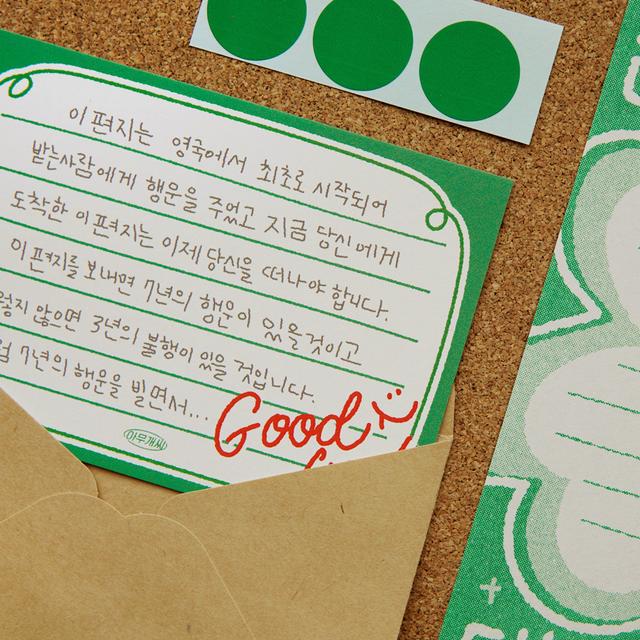 이 편지는 영국에서 최초로 시작되어
받는사람에게 행운을 주었고 지금 당신에게
도착한 이 편지는 이제 당신을 떠나야 합니다.
이 편지를 보내면 7년의 행운이 있을것이고
않으면 3년의 불행이 있을 것입니다.
7년의 행운을 빌면서...
Good
아무개씨